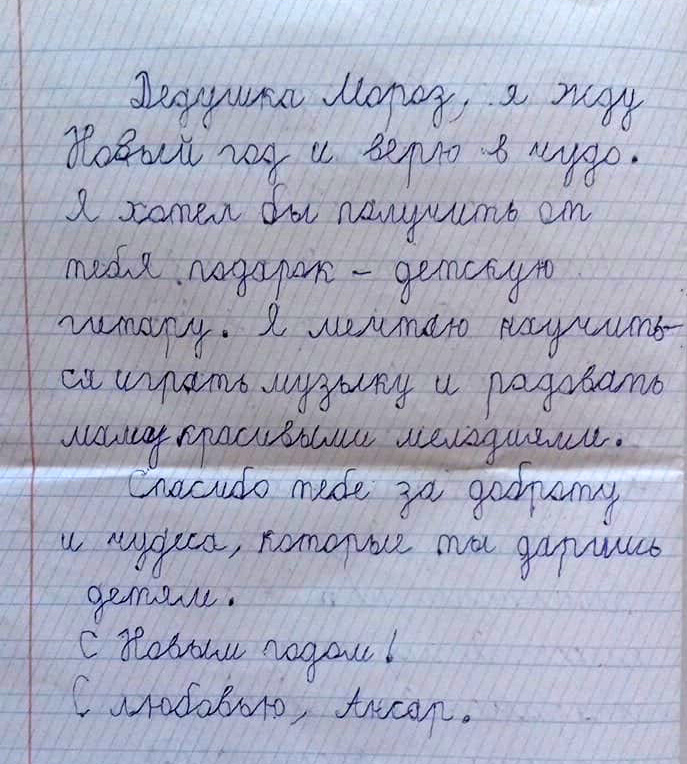 Дедушка Мороз, я жду
Новый год и верю в чудо.
Я хотел бы получить от
тебя подарок - детскую
гитару. Я мечтаю научить-
ся играть музыку и радовать
маму красивыми мелодиями.
Спасибо тебе за доброту
и чудеса, которые ты даришь
детям.
С Новым годом!
С любовью, Ансар.